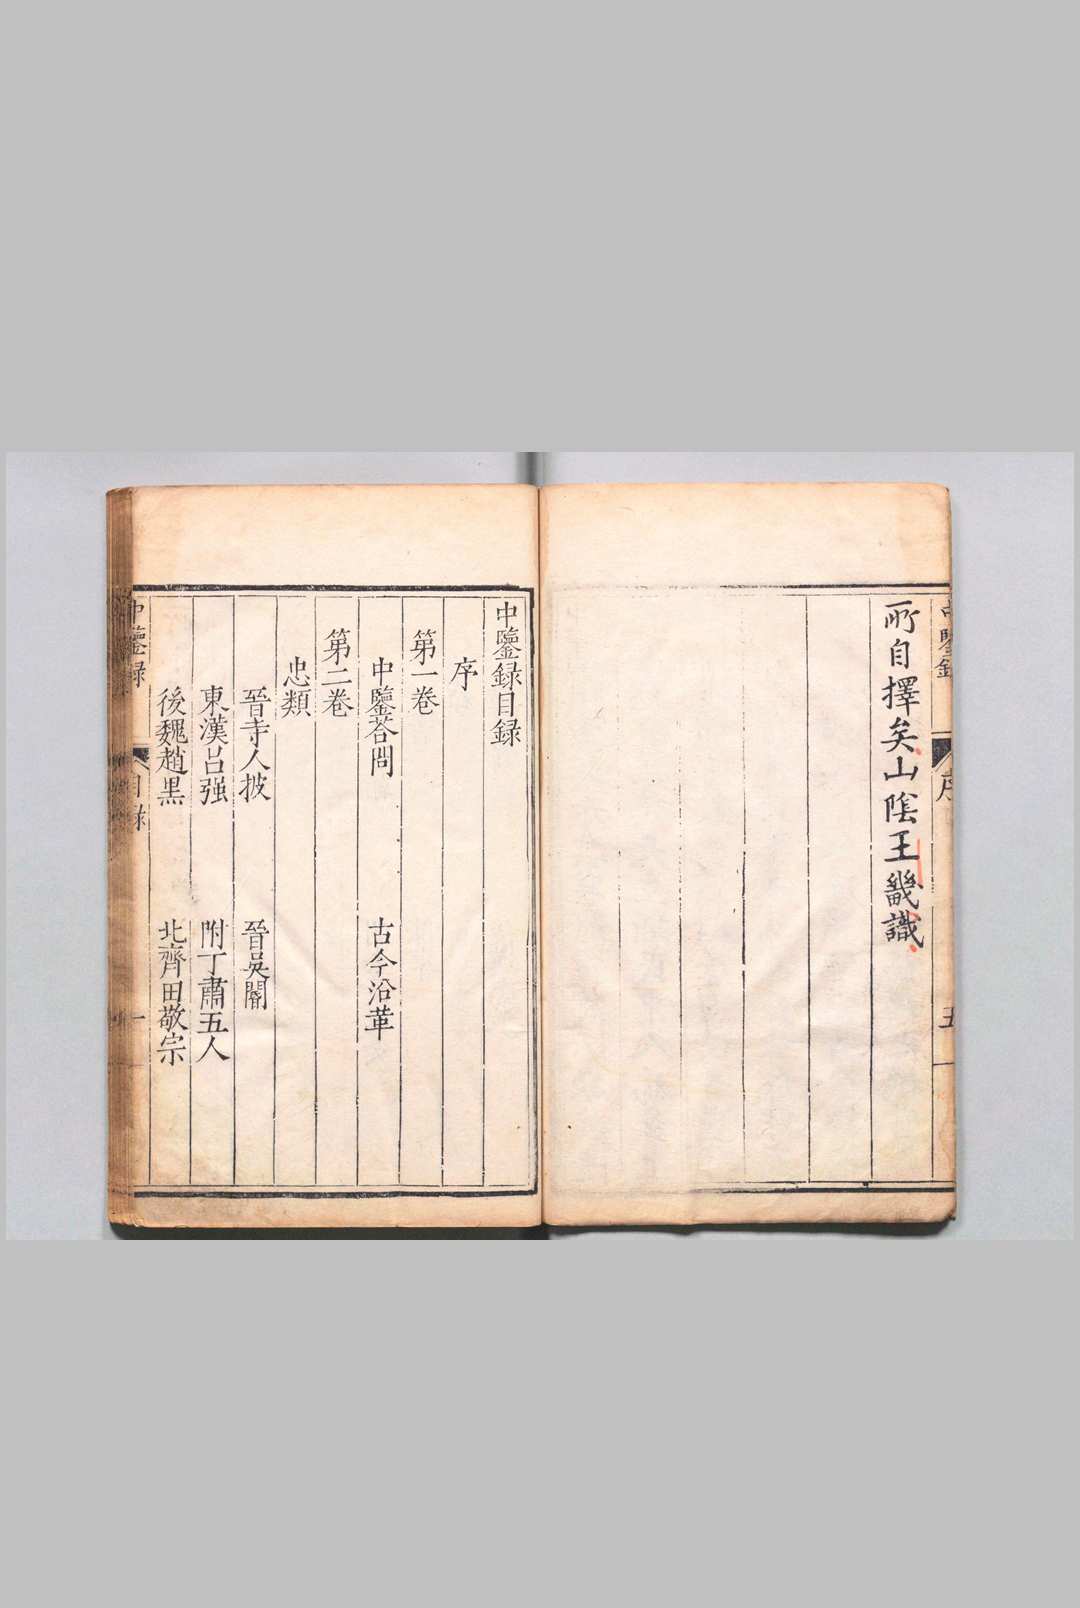 中鑒録
序
五
所自擇矣山陰王畿識
中鑒録目録
序
第一卷
中鑒荅問
古今沿革
第二卷
忠類
晉寺人披
晉吳閽
東漢吕强
附丁肅五人
後魏趙黒
北齊田敬宗
中鑒録
目録
一